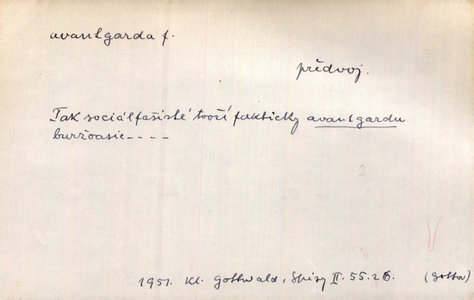 avantgarda f.
předvoj.
Tak sociálfašisté tvoří fakticky avantgardu
buržoasie----
1951. Kl. Gottwald, Spisy II. 55. 26. (Gottw)